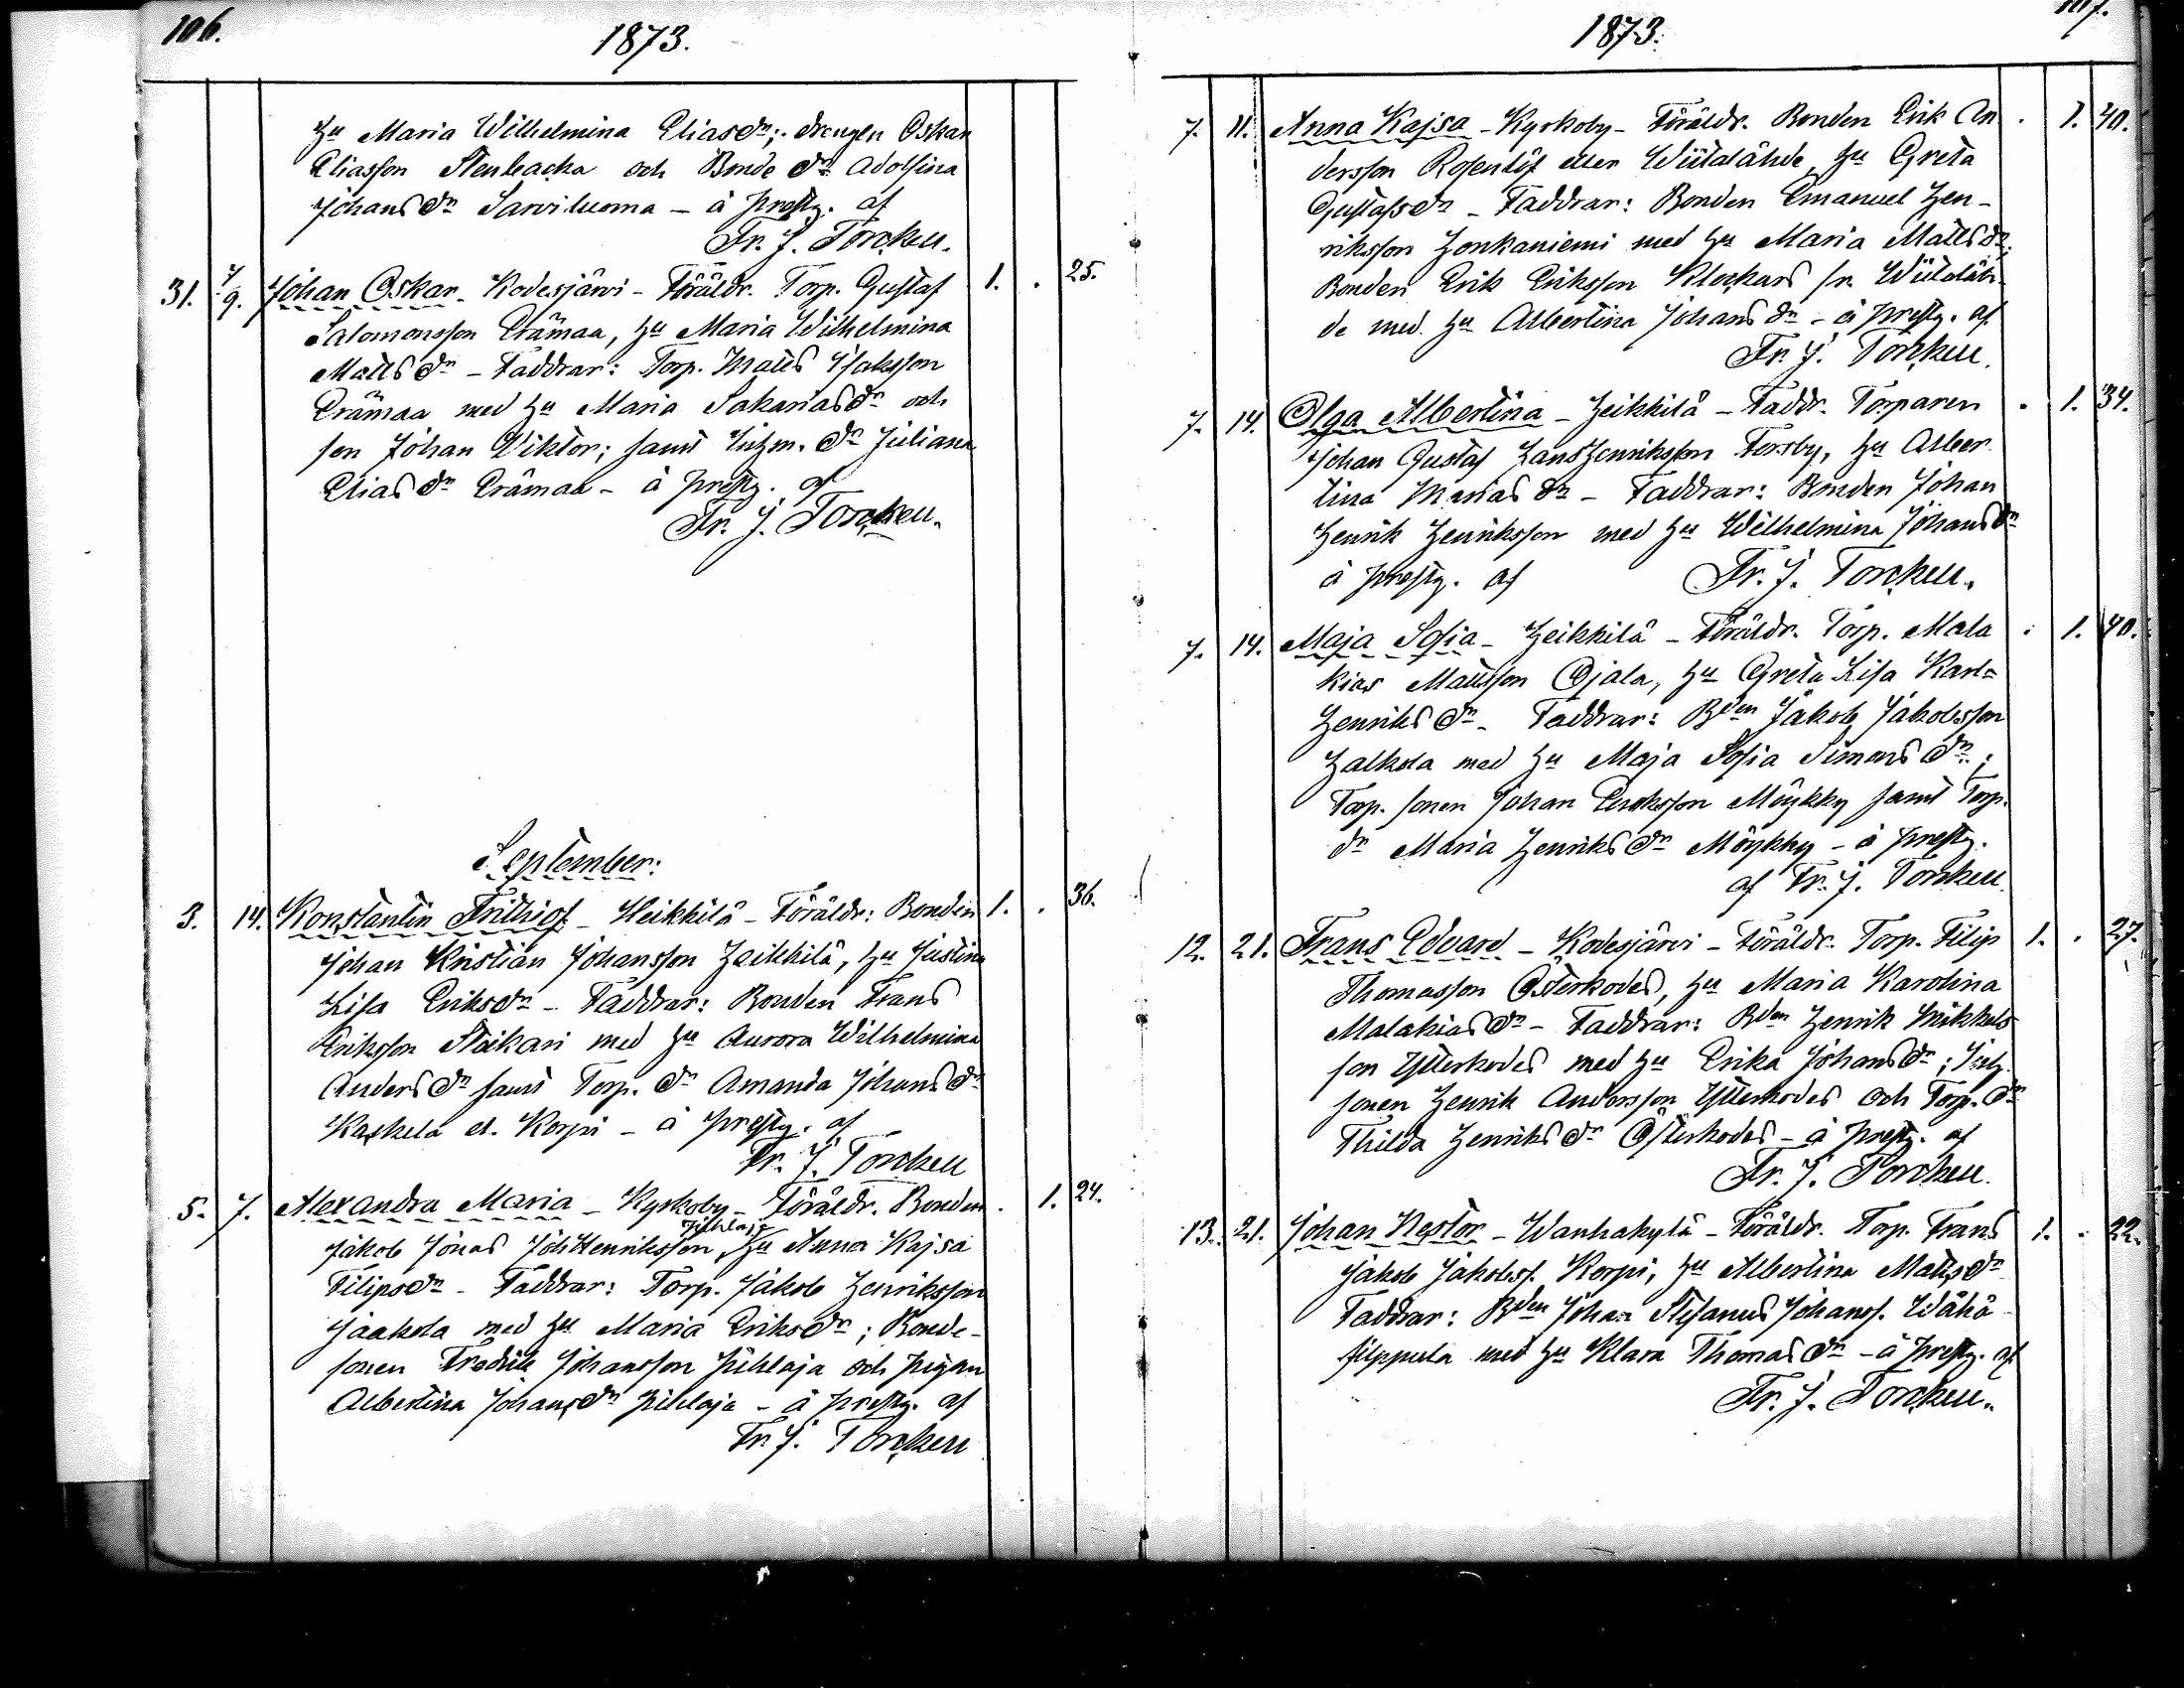 106.
1873.
Hu Maria Wilhelmina Eliasdr; drengen Oskar
Eliasson Stenbacka och Bondedr Adolfina
Johansdr Sarviluoma - à prestg. af
Fr. J. Torckell.
31. 7/9. Johan Oskar - Kodesjärvi - Föräldr. Torp. Gustaf 1. . 25.
Salomonsson Erämaa, Hu Maria Wilhelmina
Mattsdr - Faddrar: Torp. Matts Isaksson
Erämaa med Hu Maria Sakariasdr och
son Johan Viktor; samt Inhm. dr Juliana
Eliasdr Erämaa - à prestg. af
Fr. J. Torckell.
September:
3. 14. Konstantin Frithiof - Heikkilä - Föräldr: Bonden 1. . 36.
Johan Kristian Johansson Heikkilä, Hu Justina
Lisa Eriksdr - Faddrar: Bonden Frans
Eriksson Stoikari med Hu Aurora Wilhelmina
Andersdr samt Torp. dr Amanda Johansdr
Kaskela el. Korpi - à prestg. af
Fr. J. Torckell
5. 7. Alexandra Maria - Kyrkoby - Föräldr. Bonden . 1. 24.
Pihlaja
Jakob Jonas Joh Henriksson, Hu Anna Kajsa
Filipsdr - Faddrar: Torp. Jakob Henriksson
Jaakola med Hu Maria Eriksdr; Bonde-
sonen Fredrik Johansson Pihlaja och pigan
Albertina Johansdr Pihlaja - à prestg. af
Fr. J. Torckell
107.
1873.
7. 11. Anna Kajsa - Kyrkoby - Föräldr. Bonden Erik An . 1. 40.
dersson Rosenlöf eller Wiitalähde, Hu Greta
Gustafsdr - Faddrar: Bonden Emanuel Hen-
riksson Honkaniemi med Hu Maria Mattsdr;
Bonden Erik Eriksson Klockars fr. Wiitaläh-
de med Hu Albertina Johansdr - à prestg. af
Fr. J. Torckell.
7. 14. Olga Albertina - Heikkilä - Faddr. Torparen . 1. 34.
Johan Gustaf Hans Henriksson Forsby, Hu Alber
tina Mariasdr - Faddrar: Bonden Johan
Henrik Henriksson med Hu Wilhelmina Johansdr
à prestg. af Fr. J. Torckell.
7. 14. Maja Sofia - Heikkilä - Föräldr. Torp. Mala . 1. 40.
kias Mattsson Ojala, Hu Greta Lisa Karl=
Henriksdr - Faddrar: Bden Jakob Jakobsson
Halkola med Hu Maja Sofia Simonsdr;
Torp. sonen Johan Eriksson Möykky samt Torp.
dr Maria Henriksdr Möykky - à prestg.
af Fr. J. Torckell
12. 21. Frans Edvard - Kodesjärvi - Föräldr. Torp. Filip 1. . 27.
Thomasson Österkodes, Hu Maria Karolina
Malakiasdr - Faddrar: Bden Henrik Mikkels
son Ytterkodes med Hu Erika Johansdr; Inh.
sonen Henrik Andersson Ytterkodes och Torp. dr
Thilda Henriksdr Österkodes - à prestg. af
Fr. J. Torckell.
13. 21. Johan Nestor - Wanhakylä - Föräldr. Torp. Frans 1. . 22.
Jakob Jakobss. Korpi, Hu Albertina Mattsdr
Faddrar: Bden Johan Stefanus Johanss. Wähä
filppula med Hu Klara Thomasdr - à prestg. af
Fr. J. Torckell.